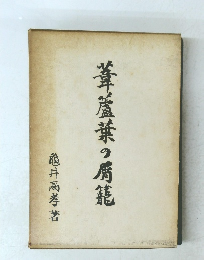 葦蘆葉の屑籠
亀井高孝著